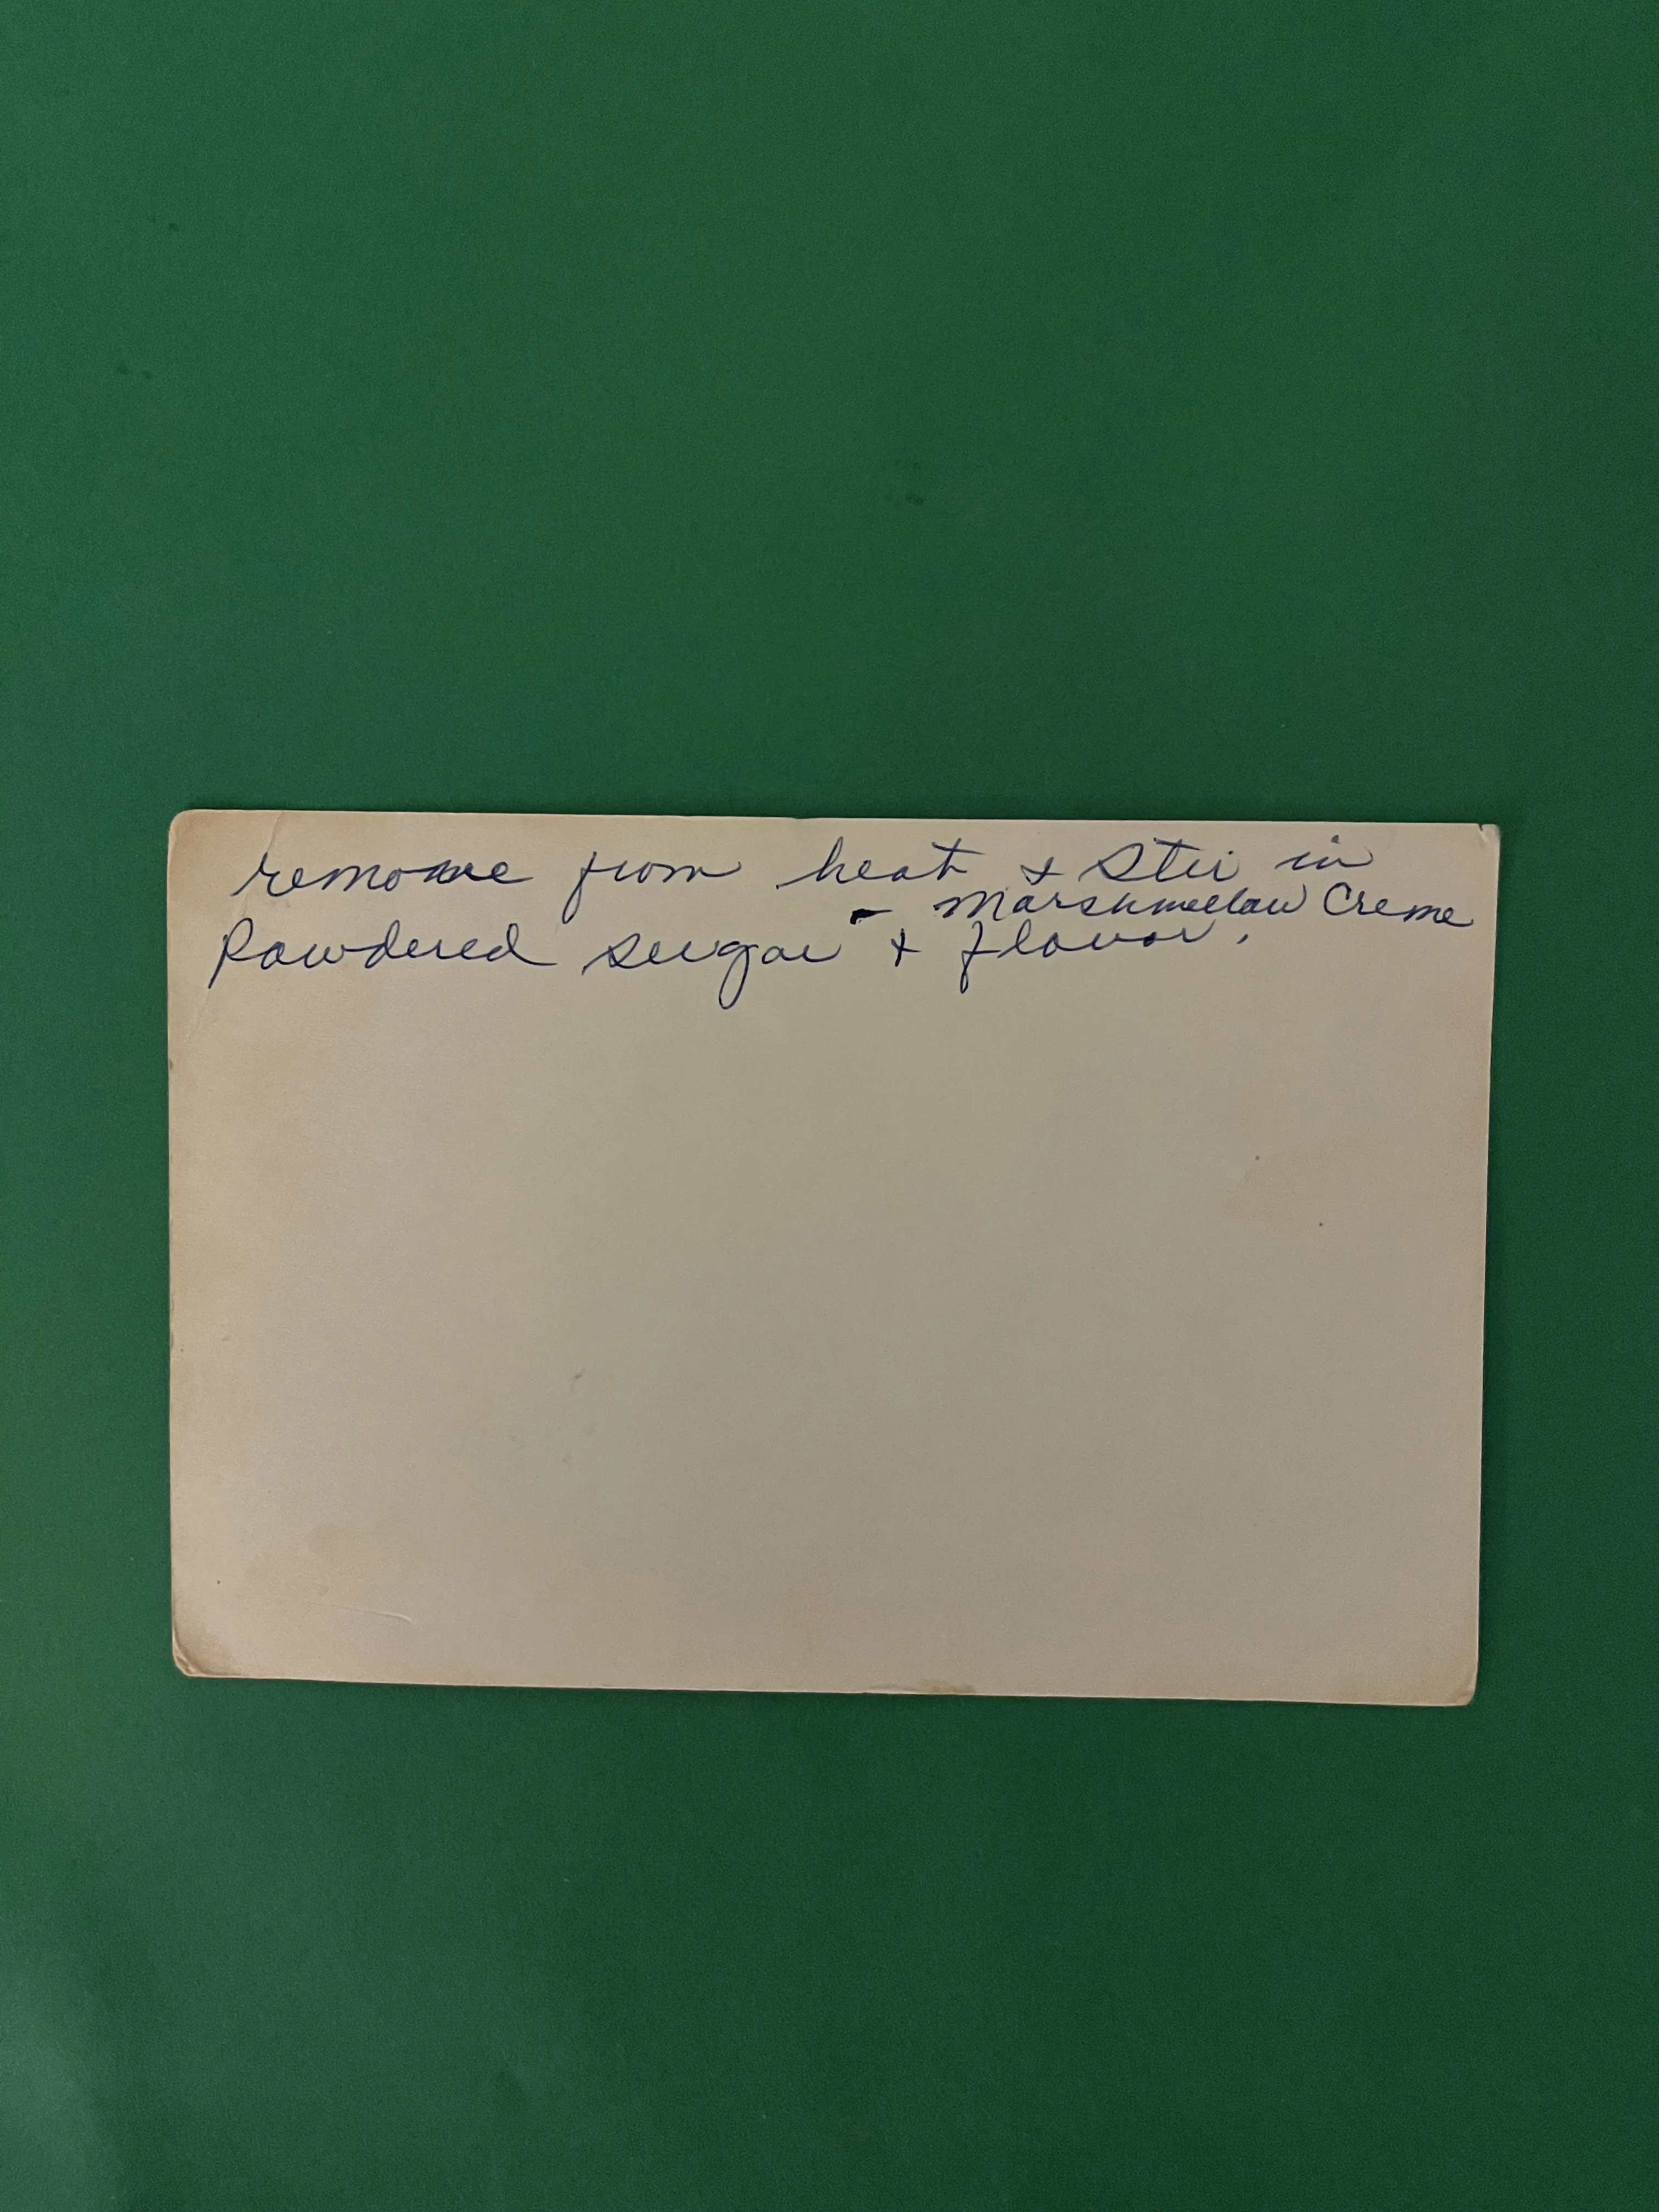 remove from heat & Stir in
- Marshmellow Creme
Powdered sugar & flavor.